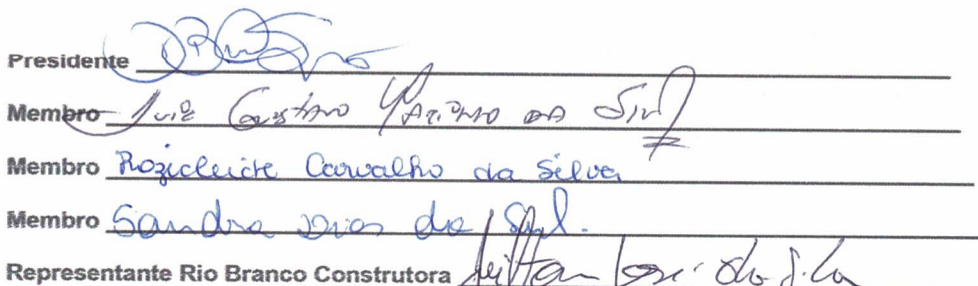 Presidente
Membro Luiz Gustavo da Silva
Membro Rozicleide Carvalho da Silva
Membro Sandra Dias da Silva.
Representante Rio Branco Construtora José da Silva